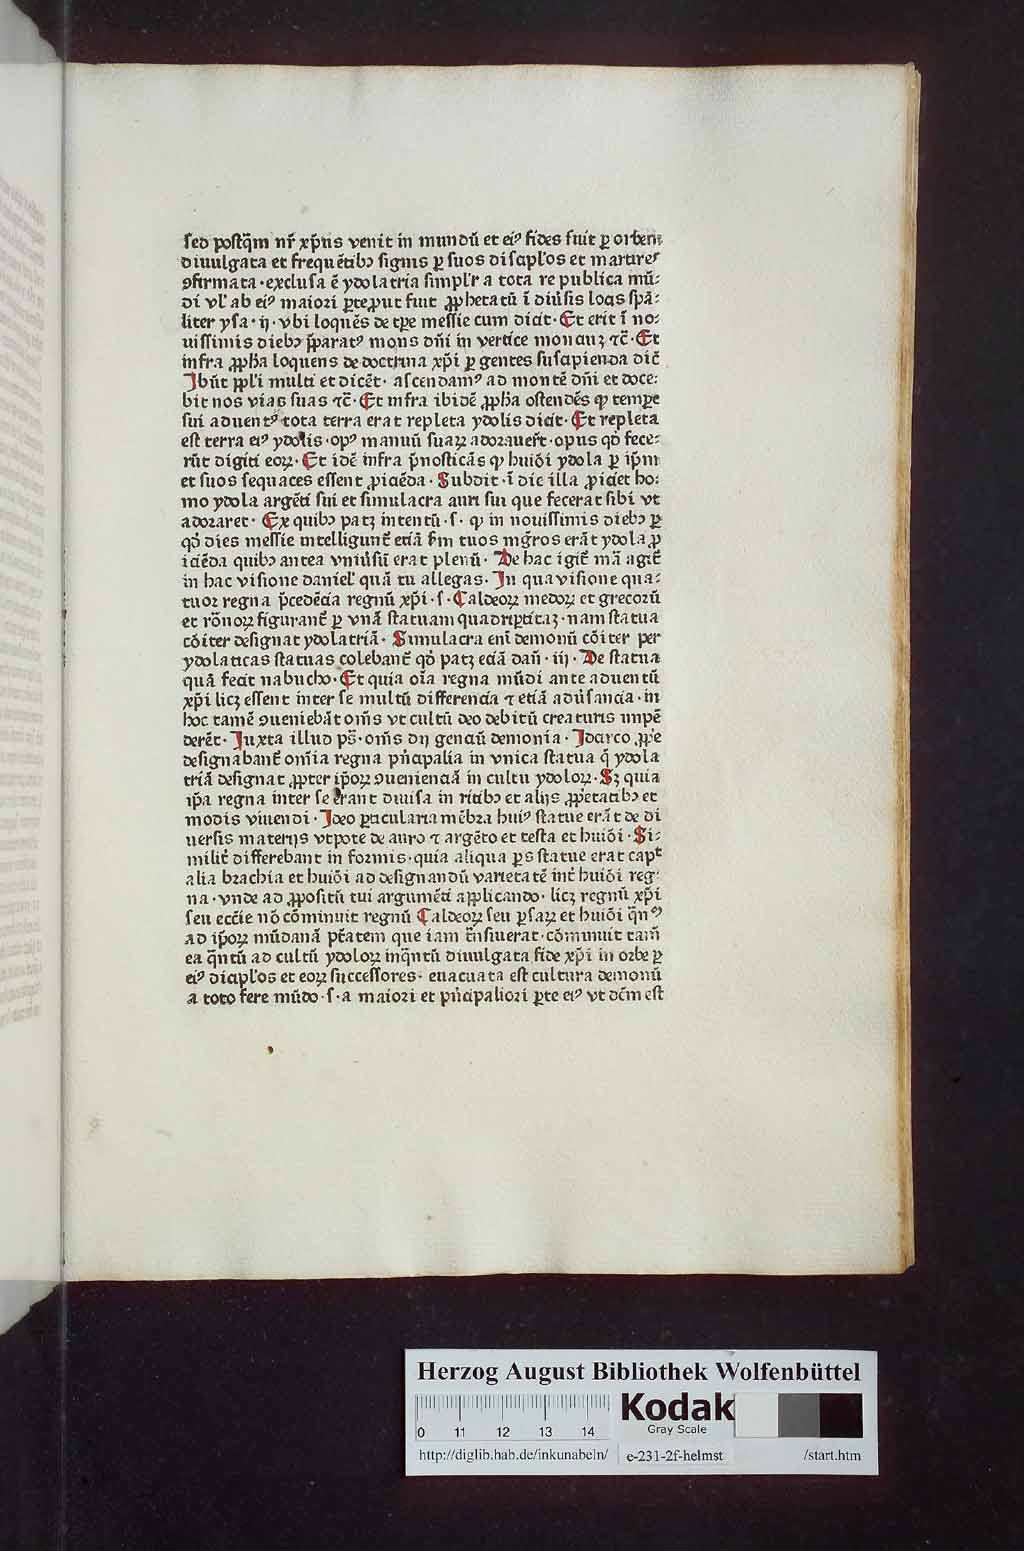 sed postq̄m nr̄ xp̄us venit in mundū et eiꝰ fides fuit ꝑ orbem
diuulgata et frequētibꝫ signis ꝑ suos discipl'os et martires
ꝯfirmata · exclusa ē ydolatria simpl'r a tota re publica mū⸗
di vl' ab eiꝰ maiori ꝑte ꝓut fuit ꝓphetatū ī diũsis locis spā⸗
liter ysa · ij · vbi loquēs de tꝑe messie cum dicit · Et erit ī no⸗
uissimis diebꝫ p̄paratꝰ mons dn̄i in vertice monciuꝫ ⁊c̄ · Et
infra ꝓph̄a loquens de doctrina xp̄i ꝑ gentes suscipienda dic̄
Ibūt ppl'i multi et dicēt · ascendamꝰ ad montē dn̄i et doce⸗
bit nos vias suas ⁊c̄ · Et infra ibidē ꝓph̄a ostendēs ꝙ tempe
sui aduentꝰ tota terra erat repleta ydolis dicit · Et repleta
est terra eiꝰ ydolis · opꝰ manuū suaꝝ adorauer̄t · opus qd̄ fece⸗
rūt digiti eoꝝ · Et idē infra p̄nosticās ꝙ huiōi ydola ꝑ ip̄m
et suos sequaces essent ꝓiciēda · Subdit · ī die illa ꝓiciet ho⸗
mo ydola argēti sui et simulacra auri sui que fecerat sibi vt
adoraret · Ex quibꝫ patꝫ intentū · s · ꝙ in nouissimis diebꝫ ꝑ
qd̄ dies messie intelligunt̄ eciā s̄m tuos mg̃ros erāt ydola ꝓ
iciēda quibꝫ antea vniũsū erat plenū · De hac igit̄ mā agit̄
in hac visione daniel' quā tu allegas · In qua visione qua⸗
tuor regna p̄cedēcia regnū xp̄i · s · Caldeoꝝ medoꝝ et grecorū
et rōnoꝝ figurant̄ ꝑ vnā statuam quadriꝑtitaꝫ · nam statua
cōiter designat ydolatriā · Simulacra eni demonū cōiter per
ydolaticas statuas colebant̄ qd̄ patꝫ eciā dan̄ · iij · De statua
quā fecit nabucho · Et quia oīa regna mūdi ante aduentū
xp̄i licꝫ essent inter se multū differencia ⁊ etiā adũsancia · in
hoc tamē ꝯueniebāt om̄s vt cultū deo debitū creaturis impē
derēt · Iuxta illud ps̄ · om̄s dij genciū demonia · Idcirco ꝓp'e
designabant̄ om̄ia regna pn̄cipalia in vnica statua q̄ ydola
triā designat ꝓpter ip̄oꝝ ꝯuenienciā in cultu ydoloꝝ · Sꝫ quia
ip̄a regna inter se erant diuisa in ritibꝫ et alijs ꝓp'etatibꝫ et
modis viuendi · Ideo ꝑticularia mēbra huiꝰ statue erāt de di
uersis materijs vtpote de auro ⁊ argēto et testa et huiōi · Si⸗
milit̄ differebant in formis · quia aliqua ꝑs statue erat capt
alia brachia et huiōi ad designandū varietatē int̄ huiōi reg⸗
na · vnde ad ꝓpositū tui argumēti applicando · licꝫ regnū xp̄i
seu ecc̄ie nō cōminuit regnū Caldeoꝝ seu ꝑsaꝝ et huiōi q̄nꝰ
ad ip̄oꝝ mūdanā pt̄atem que iam t̄nsiuerat · cōminuit tam̄
ea q̄ntū ad cultū ydoloꝝ inq̄ntū diuulgata fide xp̄i in orbe ꝑ
eiꝰ discipl'os et eoꝝ successores · euacuata est cultura demonū
a toto fere mūdo · s · a maiori et pn̄cipaliori ꝑte eiꝰ vt dc̄m est
Herzog August Bibliothek Wolfenbüttel
0 11 12 13 14
Kodak
Gray Scale
http://diglib.hab.de/inkunabeln/ e-231-2f-helmst /start.htm